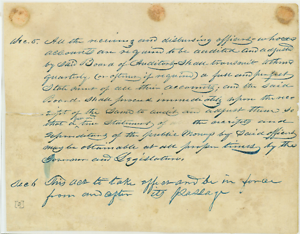 Sec. 5. All the receiving and disbursing officers whose
accounts are required to be audited and adjusted
by said Board of Auditors shall transmit to them
Quarterly (or oftener if required) a full and perfect
Statement of all their accounts; and the said
Board shall proceed immediately upon the rec
eipt of the same to audit and adjust them, so
that a true statement of the receipts and
expenditures of the public money by said officers
may be obtainable at all proper times by the
Governor and Legislature.
Sec 6 This act to take effect and be in force
from and after its passage.